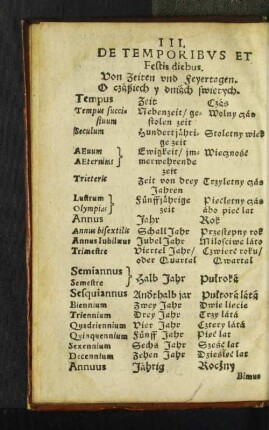 III.
DE TEMPORIBVS ET
Festis diebus.
Von Zeiten vnd Feyertagen.
O czáśiech y dniách swietych.
Tempus Zeit Czás
Tempus succisiuum Nebenzeit / gestolen zeit Wolny czás
Seculum Hundertjährige zeit Stoletny wiek
AEuum } Ewigkeit / immerwehrende zeit Wieczność
AEternitas
Trieteris Zeit von drey Jahren Trzyletny czás
Lustrum } Fünffjährige zeit Piećletny czás ábo pieć lat
Olympias
Annus Jahr Rok
Annus bisextilis SchallJahr Przestępny rok
Annus Iubilæus JubelJahr Miłośćiwe láto
Trimestre Viertel Jahr / oder Quartal Czwierć roku / Quartał
Semiannus } Halb Jahr Pułroká
Semestre
Sesquiannus Anderhalb jar Pułtorá látá
Biennium Zwey Jahr Dwie lieciá
Triennium Drey Jahr Trzy látá
Quadriennium Vier Jahr Cztery látá
Quinquennium Fünff Jahr Pieć lat
Sexennium Sechs Jahr Sześć lat
Decennium Zehen Jahr Dźieśieć lat
Annuus Jährig Roczny
Bimus